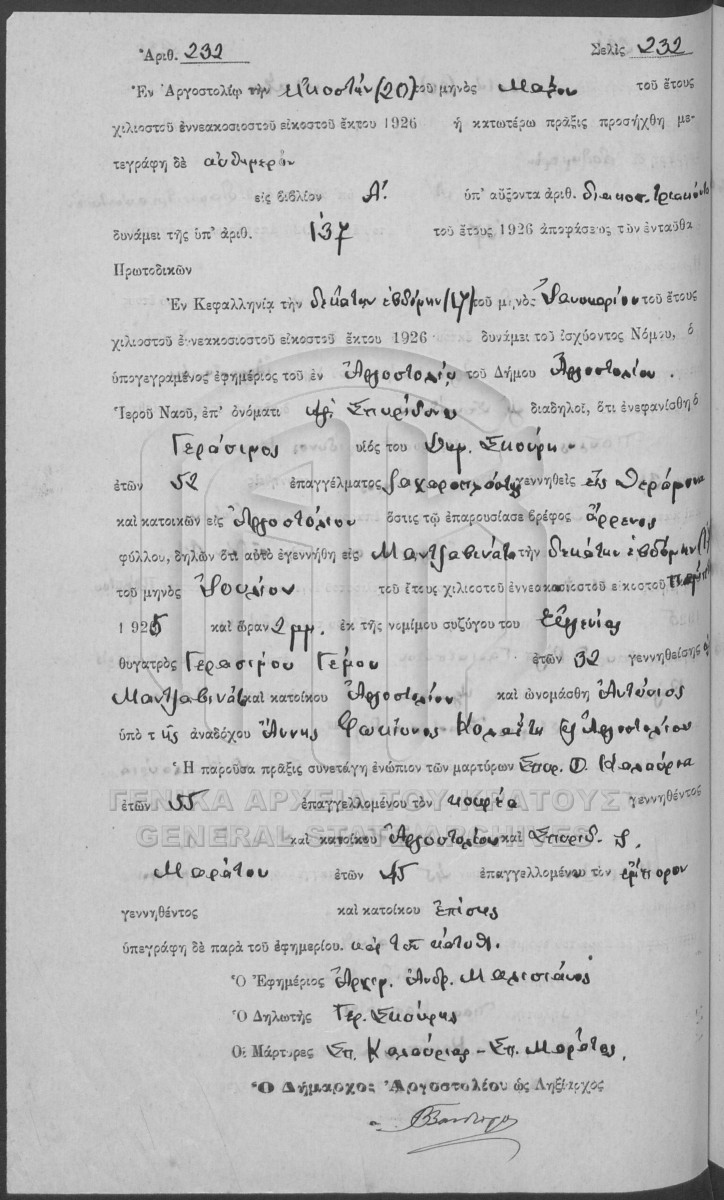 Ἀριθ. 232 Σελὶς 232
Ἐν Ἀργοστολίῳ τὴν εἰκοστὴν (20) τοῦ μηνὸς Μαΐου τοῦ ἔτους
χιλιοστοῦ ἐννεακοσιοστοῦ εἰκοστοῦ ἕκτου 1926 ἡ κατωτέρω πρᾶξις προσήχθη με-
τεγράφη δὲ αὐθημερὸν
εἰς βιβλίον Α΄. ὑπ' αὔξοντα ἀριθ. διακοσ. τριακόντα
δυνάμει τῆς ὑπ' ἀριθ. 137 τοῦ ἔτους 1926 ἀποφάσεως τῶν ἐνταῦθα
Πρωτοδικῶν
Ἐν Κεφαλληνίᾳ τὴν δεκάτην ἑβδόμην (17) τοῦ μηνὸς Ἰανουαρίου τοῦ ἔτους
χιλιοστοῦ ἐννεακοσιοστοῦ εἰκοστοῦ ἕκτου 1926 δυνάμει τοῦ ἰσχύοντος Νόμου, ὁ
ὑπογεγραμένος ἐφημέριος τοῦ ἐν Ἀργοστολίῳ τοῦ Δήμου Ἀργοστολίου.
Ἱεροῦ Ναοῦ, ἐπ' ὀνόματι Ἁγ. Σπυρίδωνος διαδηλοῖ, ὅτι ἐνεφανίσθη ὁ
Γεράσιμος υἱός του Δημ. Σκούρη
ἐτῶν 52 ἐπαγγέλματος ζαχαροπλάστης γεννηθεὶς εἰς
καὶ κατοικῶν εἰς Ἀργοστόλιον ὅστις τῷ ἐπαρουσίασε βρέφος ἄρρενος
φύλλου, δηλῶν ὅτι αὐτὸ ἐγεννήθη εἰς Μαντζαβινάτα τὴν δεκάτην ἑβδόμην
τοῦ μηνὸς Ἰουλίου τοῦ ἔτους χιλιοστοῦ ἐννεακοσιοστοῦ εἰκοστοῦ πέμπτου
1925 καὶ ὥραν 2 μμ. ἐκ τῆς νομίμου συζύγου του Εὐγενίας
θυγατρὸς Γερασίμου Γέμου ἐτῶν 32 γεννηθείσης
Μαντζαβινάτα καὶ κατοίκου Ἀργοστολίου καὶ ὠνομάσθη Ἀντώνιος
ὑπὸ τῆς ἀναδόχου Ἄννης Φωκίωνος ἐξ Ἀργοστολίου
Ἡ παροῦσα πρᾶξις συνετάγη ἐνώπιον τῶν μαρτύρων Σπυρ. Καλαύρια
ἐτῶν 55 ἐπαγγελλομένου τὸν κουρέα γεννηθέντος
καὶ κατοίκου Ἀργοστολίου καὶ Σπυριδ.
Μαράτου ἐτῶν 45 ἐπαγγελλομένου τὸν ἔμπορον
γεννηθέντος καὶ κατοίκου ἐπίσης
ὑπεγράφη δὲ παρὰ τοῦ ἐφημερίου.
Ὁ Ἐφημέριος Ἀνδρ. Μαλισιάνος
Ὁ Δηλωτὴς Γερ. Σκούρης
Οἱ Μάρτυρες Σπ. Καλαύριας - Σπ. Μαράτος.
Ὁ Δήμαρχος Ἀργοστολίου ὡς Ληξίαρχος
ΓΕΝΙΚΑ ΑΡΧΕΙΑ ΤΟΥ ΚΡΑΤΟΥΣ
GENERAL STATE ARCHIVES